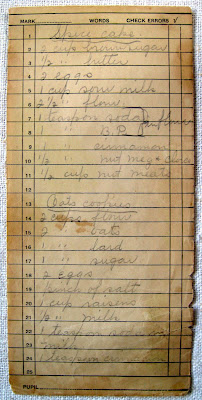 MARK WORDS CHECK ERRORS
1 Spice cake
2 2 cup brown sugar
3 1/2 " butter
4 2 eggs
5 1 cup sour milk
6 2 1/2 " flour
7 1 teaspoon soda in flour
8 1 " B.P.
9 1 " cinnamon
10 1/2 " nut meg &
11 1/2 cup nut meats
12
13 Oats cookies
14 2 cups flour
15 2 " oats
16 1 " lard
17 1 " sugar
18 2 eggs
19 pinch of salt
20 1 cup raisins
21 1/2 " milk
22 1 teaspoon soda
23 milk
24 1 teaspoon
25
PUPIL